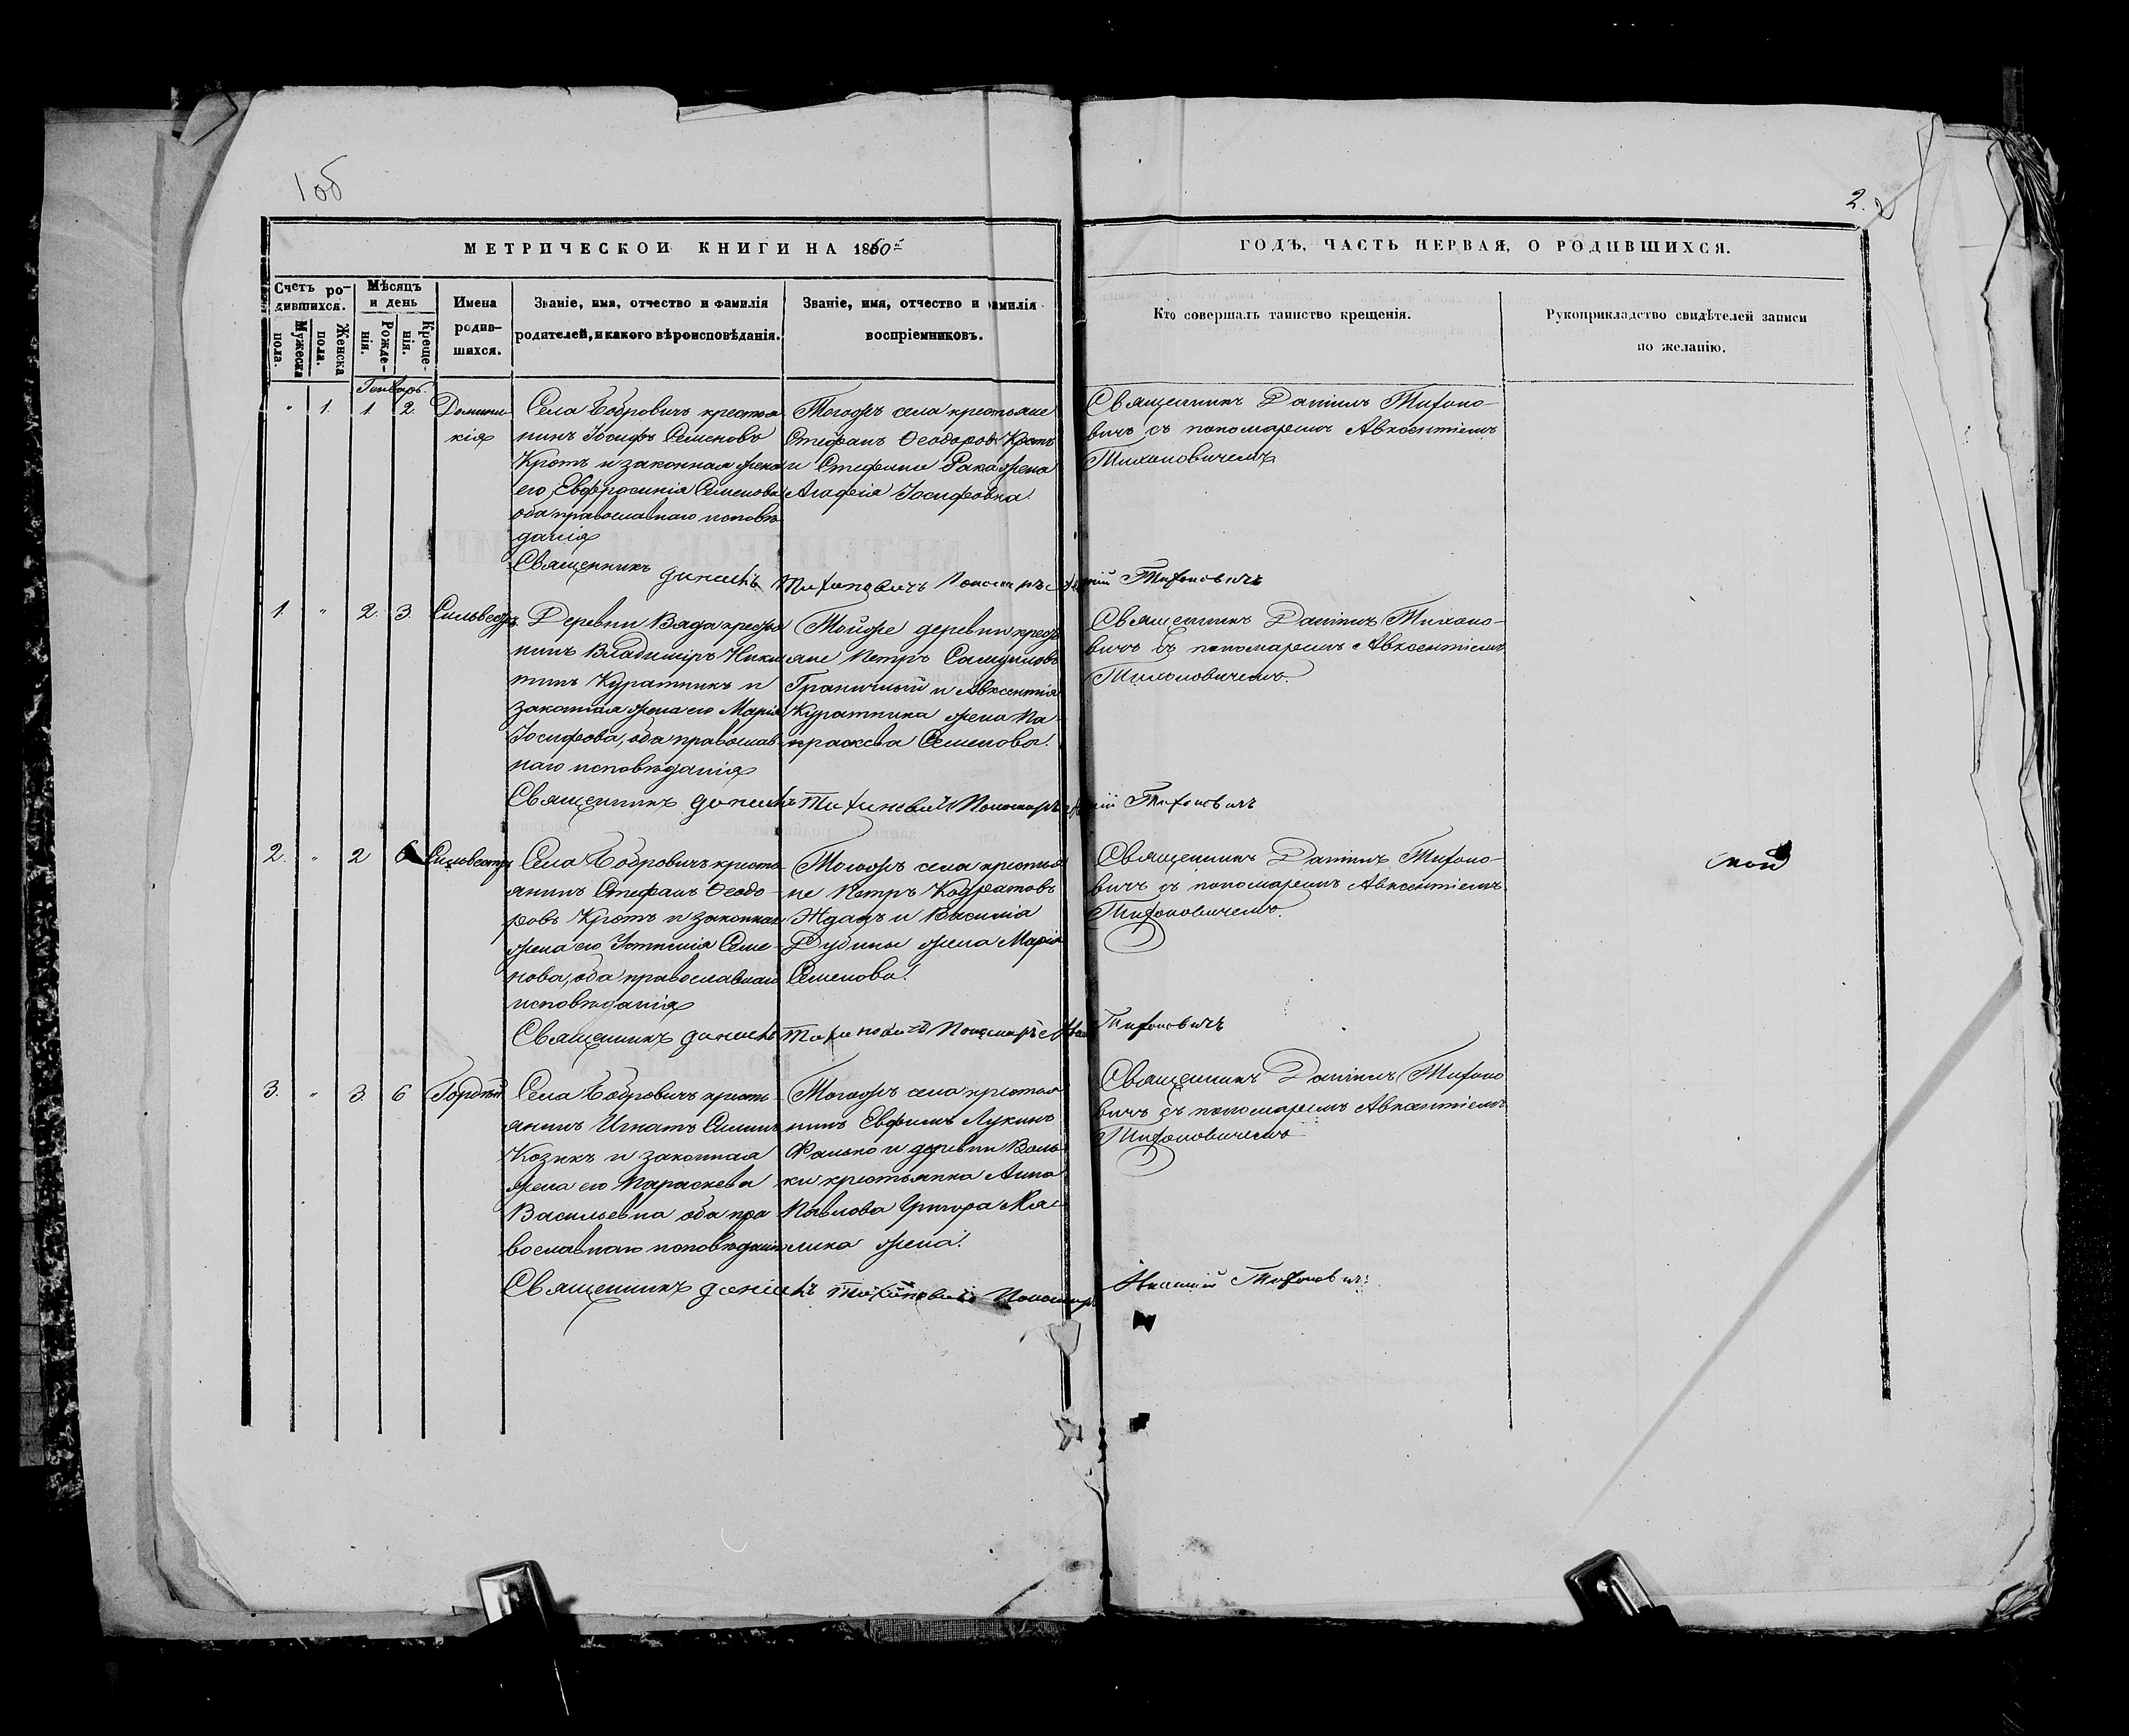 1 об
2.
МЕТРИЧЕСКОЙ КНИГИ НА 1860й
ГОДЪ, ЧАСТЬ ПЕРВАЯ, О РОДИВШИХСЯ.
Счетъ ро-
дившихся.
Мужеска
пола.
Женска
пола.
Мѣсяцъ
и день
Рожде-
нія.
Креще-
нія.
Имена
родив-
шихся.
Званіе, имя, отчество и фамилія
родителей, и какого вѣроисповѣданія.
Званіе, имя, отчество и фамилія
воспріемниковъ.
Кто совершалъ таинство крещенія.
Рукоприкладство свидѣтелей записи
по желанію.
Генварь.
" 1. 1 2. Домни-
кія
Села Бобровичъ крестья
нинъ Іосифъ Семеновъ
Кротъ и законная жена
его Евфросинія Семенова
оба православнаго исповѣ
данія
Тогожъ села крестьяне
Стефанъ Ѳеодоровъ Кротъ
и Стефана Рака жена
Агафія Іосифовна.
Священникъ Даніилъ Тихоно-
вичъ съ пономаремъ Авксентіемъ
Тихоновичемъ
Священникъ Даніилъ Тихоновичъ Пономарь Тихоновичъ
1. " 2. 3. Сильвестръ
Деревни Вяда крестья
нинъ Владиміръ Ники
тинъ Куратникъ и
законная жена его Марія
Іосифова, оба православ
наго исповѣданія
Тойже деревни кресть
яне Петръ Самуиловъ
Граничный и Авксентія
Куратника жена Па
раскева Семенова.
Священникъ Даніилъ Тихоно-
вичъ съ пономаремъ Авксентіемъ
Тихоновичемъ.
Священникъ Даніилъ Тихоновичъ Пономарь Тихоновичъ
2. " 2 6 Сильвестръ
Села Бобровичъ кресть
янинъ Стефанъ Ѳеодо-
ровъ Кротъ и законная
жена его Устинія Семе-
нова, оба православнаго
исповѣданія
Тогожъ села крестья
не Петръ Кодратовъ
Жданъ и Василія
Дубины жена Марія
Семенова.
Священникъ Даніилъ Тихоно-
вичъ съ пономаремъ Авксентіемъ
Тихоновичемъ.
Священникъ Даніилъ Тихоновичъ Пономарь Тихоновичъ
3. " 3 6 Гордѣй
Села Бобровичъ кресть-
янинъ Игнатъ Силинъ
Козикъ и законная
жена его Параскева
Васильевна оба пра
вославнаго исповѣданія
Тогожъ села крестья
нинъ Евфимъ Лукинъ
Фалько и деревни Воль-
ки крестьянка Анна
Павлова Григора
жена.
Священникъ Даніилъ Тихоно
вичъ съ пономаремъ Авксентіемъ
Тихоновичемъ
Священникъ Даніилъ Тихоновичъ Пономарь Тихоновичъ